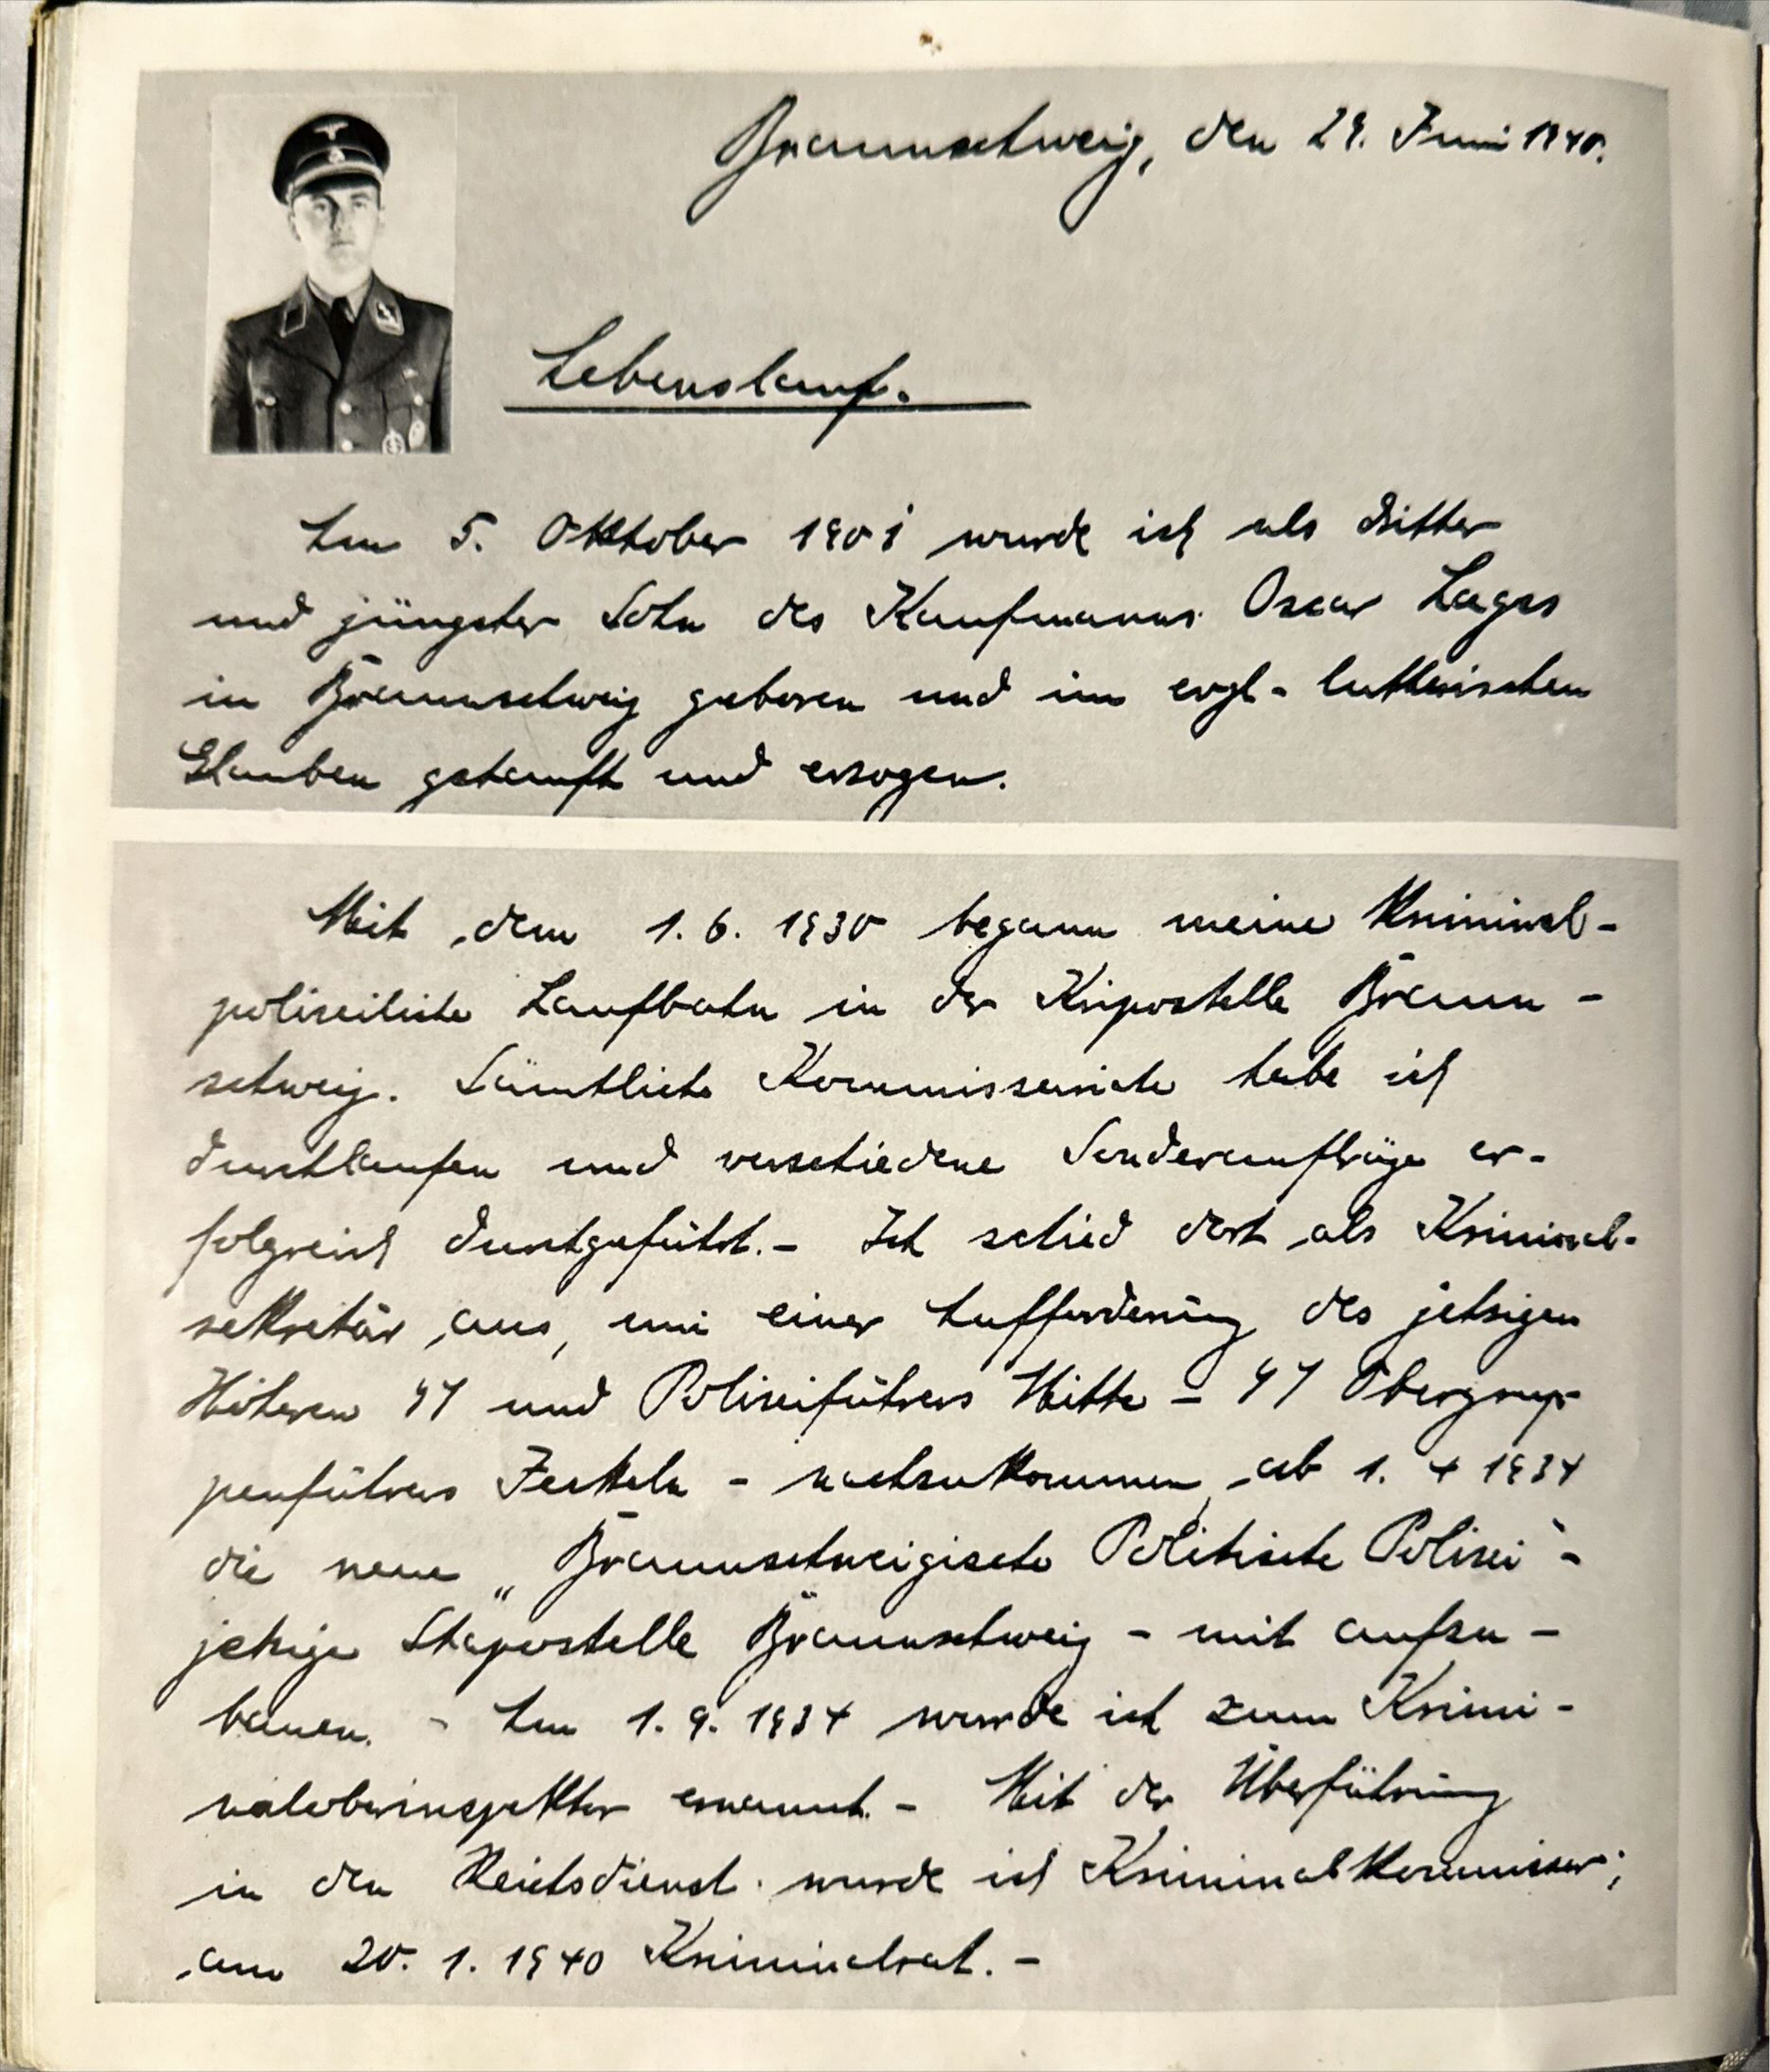 Braunschweig, den 29. Juni 1940.
Lebenslauf.
Am 5. Oktober 1901 wurde ich als dritter
und jüngster Sohn des Kaufmanns Oscar Lages
in Braunschweig geboren und im evgl.- lutherischen
Glauben getauft und erzogen.
Mit dem 1. 6. 1930 begann meine Kriminal-
polizeiliche Laufbahn in der Kripostelle Braun-
schweig. Sämtliche Kommissariate habe ich
durchlaufen und verschiedene Sonderaufträge er-
folgreich durchgeführt. - Ich schied dort als Kriminal-
sekretär aus, um einer Aufforderung des jetzigen
Höheren SS und Polizeiführers Mitte - SS Obergrup-
penführers Jeckeln - nachzukommen, ab 1. 4 1934
die neue „Braunschweigische Politische Polizei“ -
jetzige Stapostelle Braunschweig - mit aufzu-
bauen. - Am 1. 9. 1934 wurde ich zum Krimi-
naloberinspektor ernannt. - Mit der Überführung
in den Reichsdienst wurde ich Kriminalkommissar;
am 20. 1. 1940 Kriminalrat. -